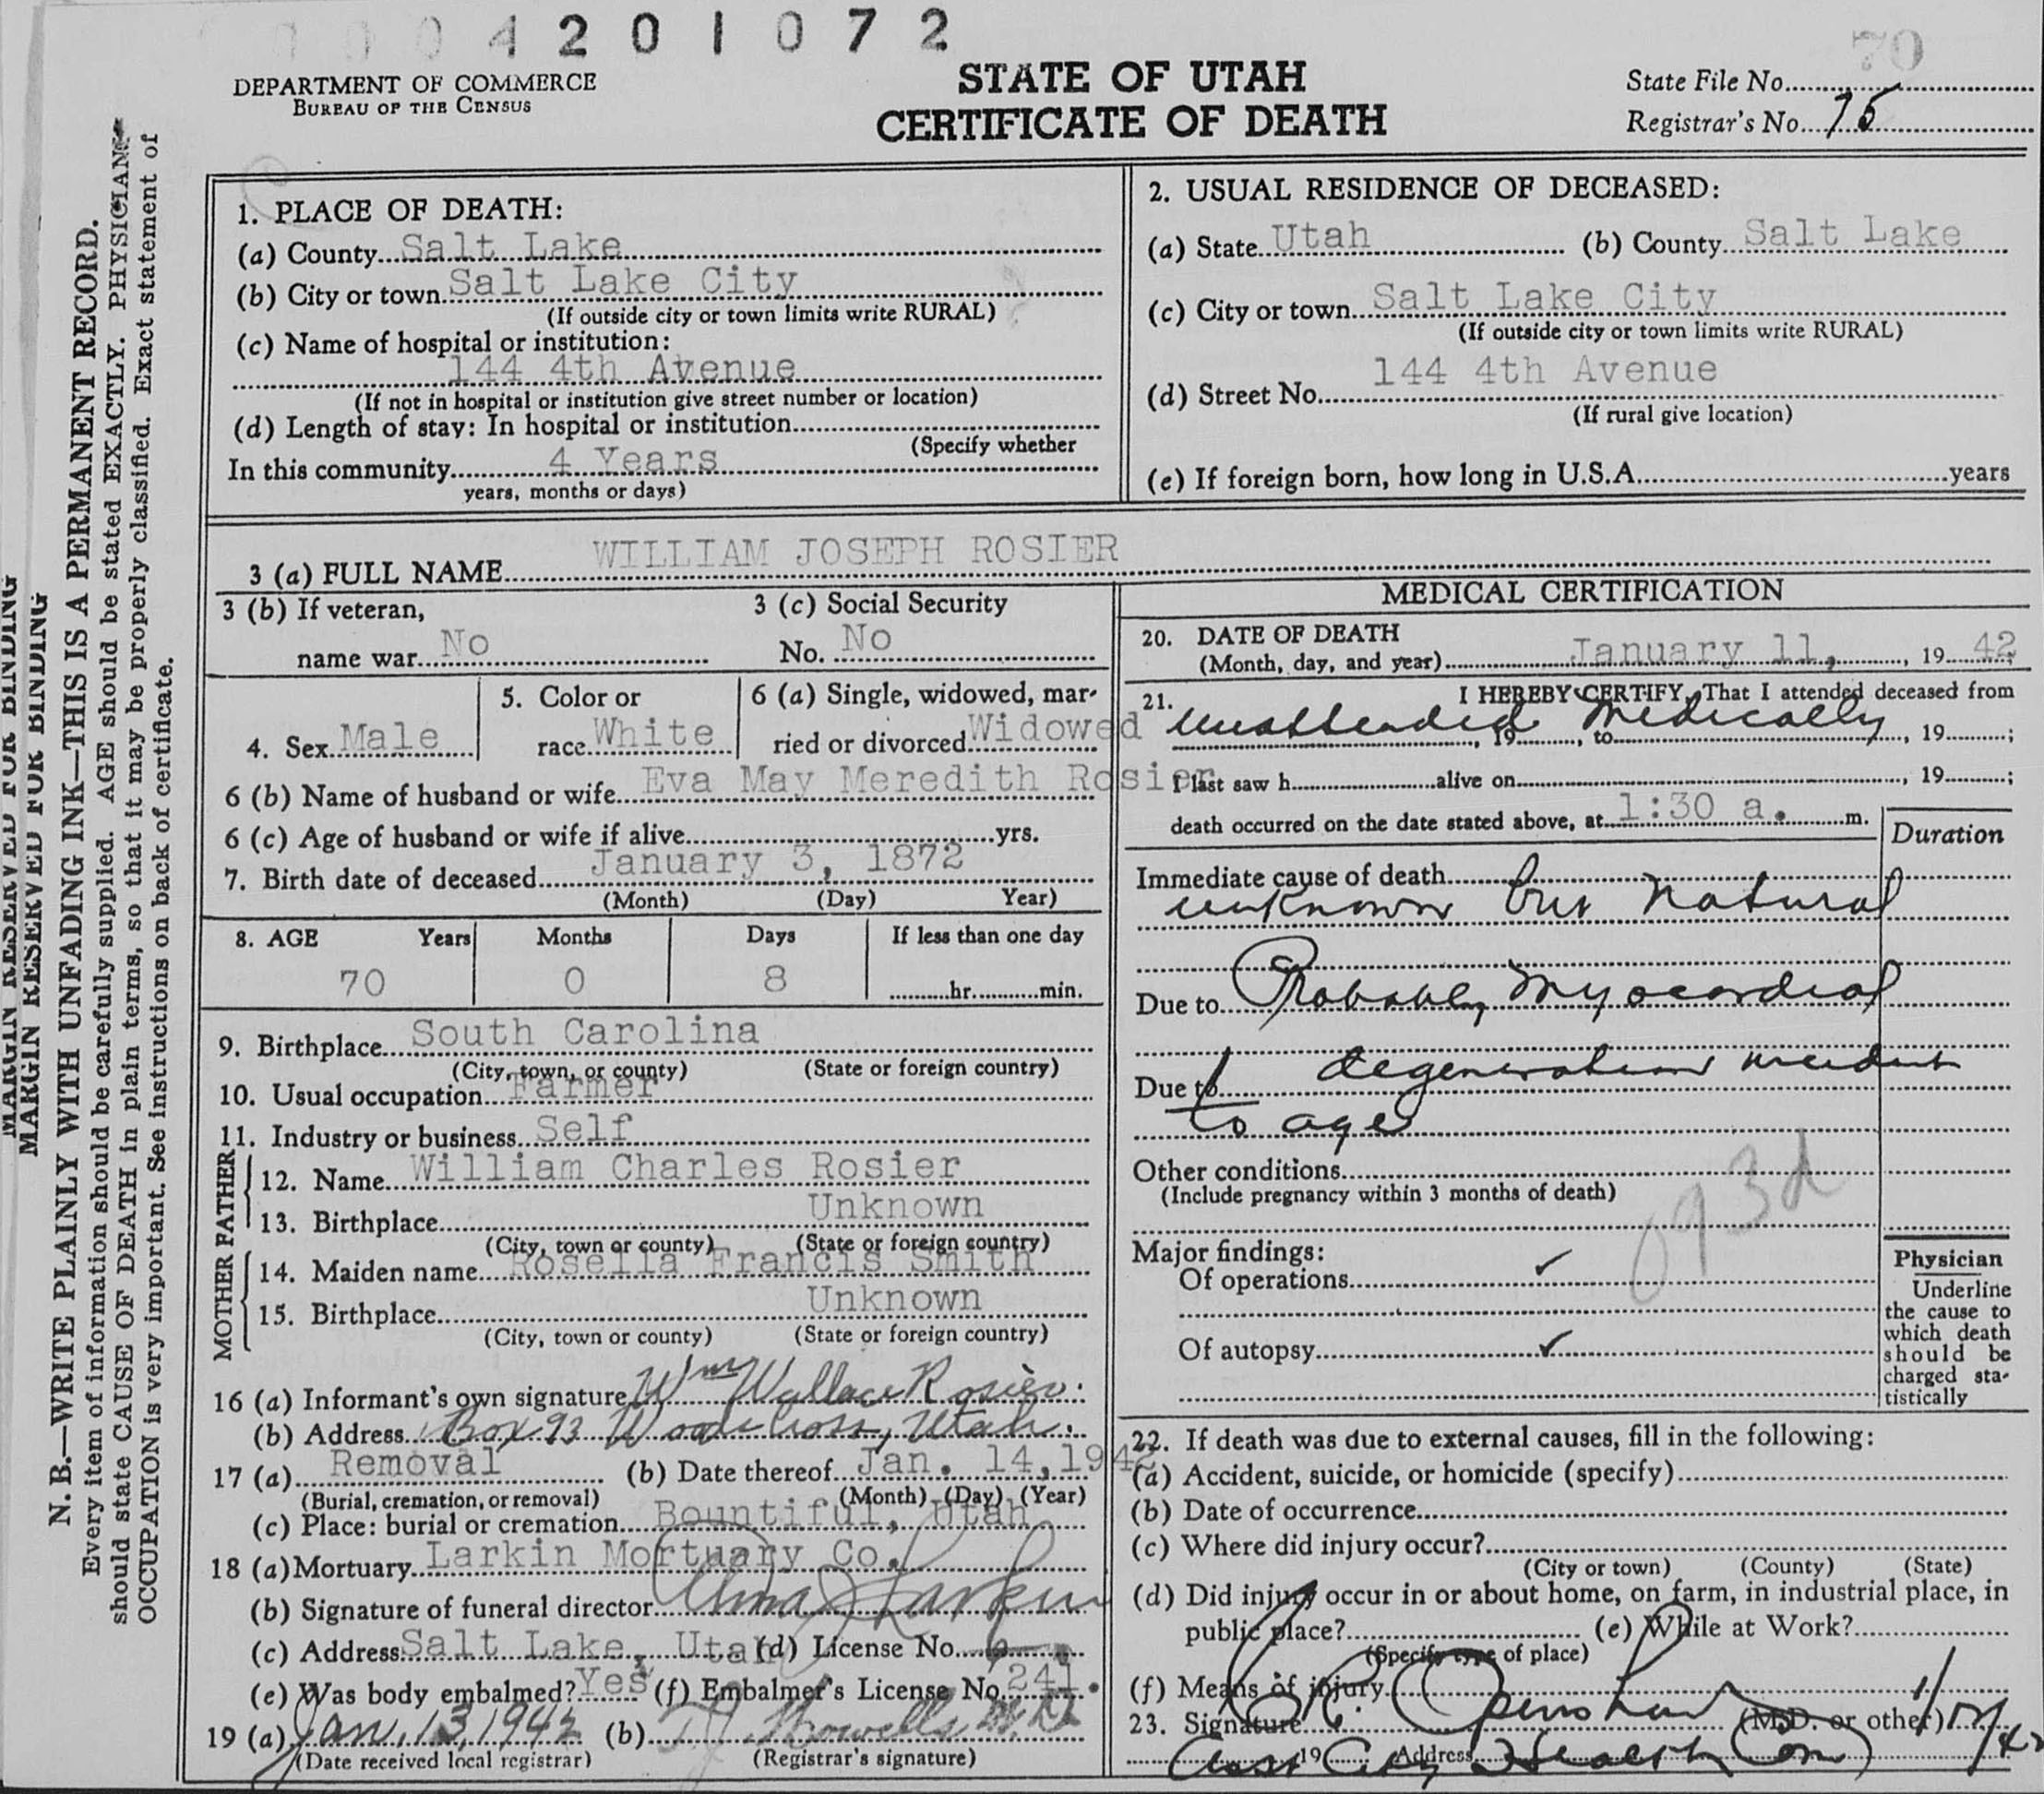 4 2 0 1 0 7 2
70
DEPARTMENT OF COMMERCE
BUREAU OF THE CENSUS
STATE OF UTAH
CERTIFICATE OF DEATH
State File No.
Registrar's No. 75
MARGIN RESERVED FOR BINDING
MARGIN RESERVED FOR BINDING
N. B.—WRITE PLAINLY WITH UNFADING INK—THIS IS A PERMANENT RECORD.
Every item of information should be carefully supplied. AGE should be stated EXACTLY. PHYSICIAN
should state CAUSE OF DEATH in plain terms, so that it may be properly classified. Exact statement of
OCCUPATION is very important. See instructions on back of certificate.
1. PLACE OF DEATH:
(a) County Salt Lake
(b) City or town Salt Lake City
(If outside city or town limits write RURAL)
(c) Name of hospital or institution:
144 4th Avenue
(If not in hospital or institution give street number or location)
(d) Length of stay: In hospital or institution
(Specify whether
In this community 4 Years
years, months or days)
2. USUAL RESIDENCE OF DECEASED:
(a) State Utah (b) County Salt Lake
(c) City or town Salt Lake City
(If outside city or town limits write RURAL)
(d) Street No. 144 4th Avenue
(If rural give location)
(e) If foreign born, how long in U.S.A. years
3 (a) FULL NAME WILLIAM JOSEPH ROSIER
3 (b) If veteran,
name war No
3 (c) Social Security
No. No
4. Sex Male
5. Color or
race White
6 (a) Single, widowed, mar-
ried or divorced Widowed
6 (b) Name of husband or wife Eva May Meredith Rosier
6 (c) Age of husband or wife if alive yrs.
7. Birth date of deceased January 3, 1872
(Month) (Day) Year)
8. AGE Years Months Days If less than one day
70 0 8 hr. min.
9. Birthplace South Carolina
(City, town, or county) (State or foreign country)
10. Usual occupation Farmer
11. Industry or business Self
FATHER
12. Name William Charles Rosier
13. Birthplace Unknown
(City, town or county) (State or foreign country)
MOTHER
14. Maiden name Rosella Francis Smith
15. Birthplace Unknown
(City, town or county) (State or foreign country)
16 (a) Informant's own signature Wm Wallace Rosier.
(b) Address Box 93 Woods Cross, Utah.
17 (a) Removal (b) Date thereof Jan. 14, 1942
(Burial, cremation, or removal) (Month) (Day) (Year)
(c) Place: burial or cremation Bountiful, Utah
18 (a) Mortuary Larkin Mortuary Co.
(b) Signature of funeral director Alma J Larkin
(c) Address Salt Lake, Utah (d) License No. 6
(e) Was body embalmed? Yes (f) Embalmer's License No. 241.
19 (a) Jan. 13, 1942 (b) T J Howells M.D.
(Date received local registrar) (Registrar's signature)
MEDICAL CERTIFICATION
20. DATE OF DEATH
(Month, day, and year) January 11, , 19 42
21. I HEREBY CERTIFY, That I attended deceased from
Unattended Medically
, 19 , to , 19 ;
I last saw h alive on , 19 ;
death occurred on the date stated above, at 1:30 a. m.
Duration
Immediate cause of death
unknown but natural
Due to Probably Myocardial
Due to degeneration incident
to age
Other conditions
(Include pregnancy within 3 months of death)
093d
Major findings:
Of operations ✓
Of autopsy ✓
Physician
Underline
the cause to
which death
should be
charged sta-
tistically
22. If death was due to external causes, fill in the following:
(a) Accident, suicide, or homicide (specify)
(b) Date of occurrence
(c) Where did injury occur?
(City or town) (County) (State)
(d) Did injury occur in or about home, on farm, in industrial place, in
public place? (e) While at Work?
(Specify type of place)
(f) Means of injury
23. Signature Openshaw (M.D. or other)
19 Address
Asst City Health Com